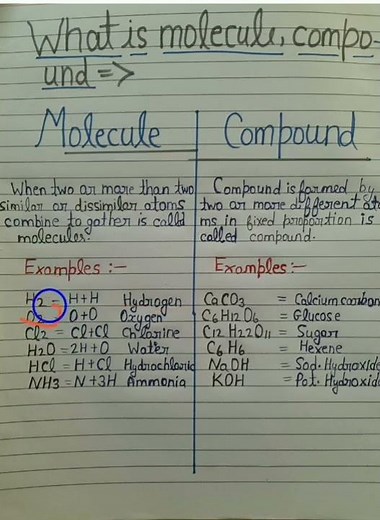 What is molecule, compo-
und =>
Molecule
When two or more than two
similar or dissimilar atoms
combine to gather is called
molecules.
Examples :-
H2 = H+H Hydrogen
O2 = O+O Oxygen
Cl2 = Cl+Cl Chlorine
H2O = 2H+O Water
HCl = H+Cl Hydrochloric
NH3 = N+3H Ammonia
Compound
Compound is formed by
two or more different ato
ms in fixed proportion is
called compound.
Examples :-
CaCO3 = Calcium carbon
C6H12O6 = Glucose
C12H22O11 = Sugar
C6H6 = Hexene
NaOH = Sod. Hydroxide
KOH = Pot. Hydroxide